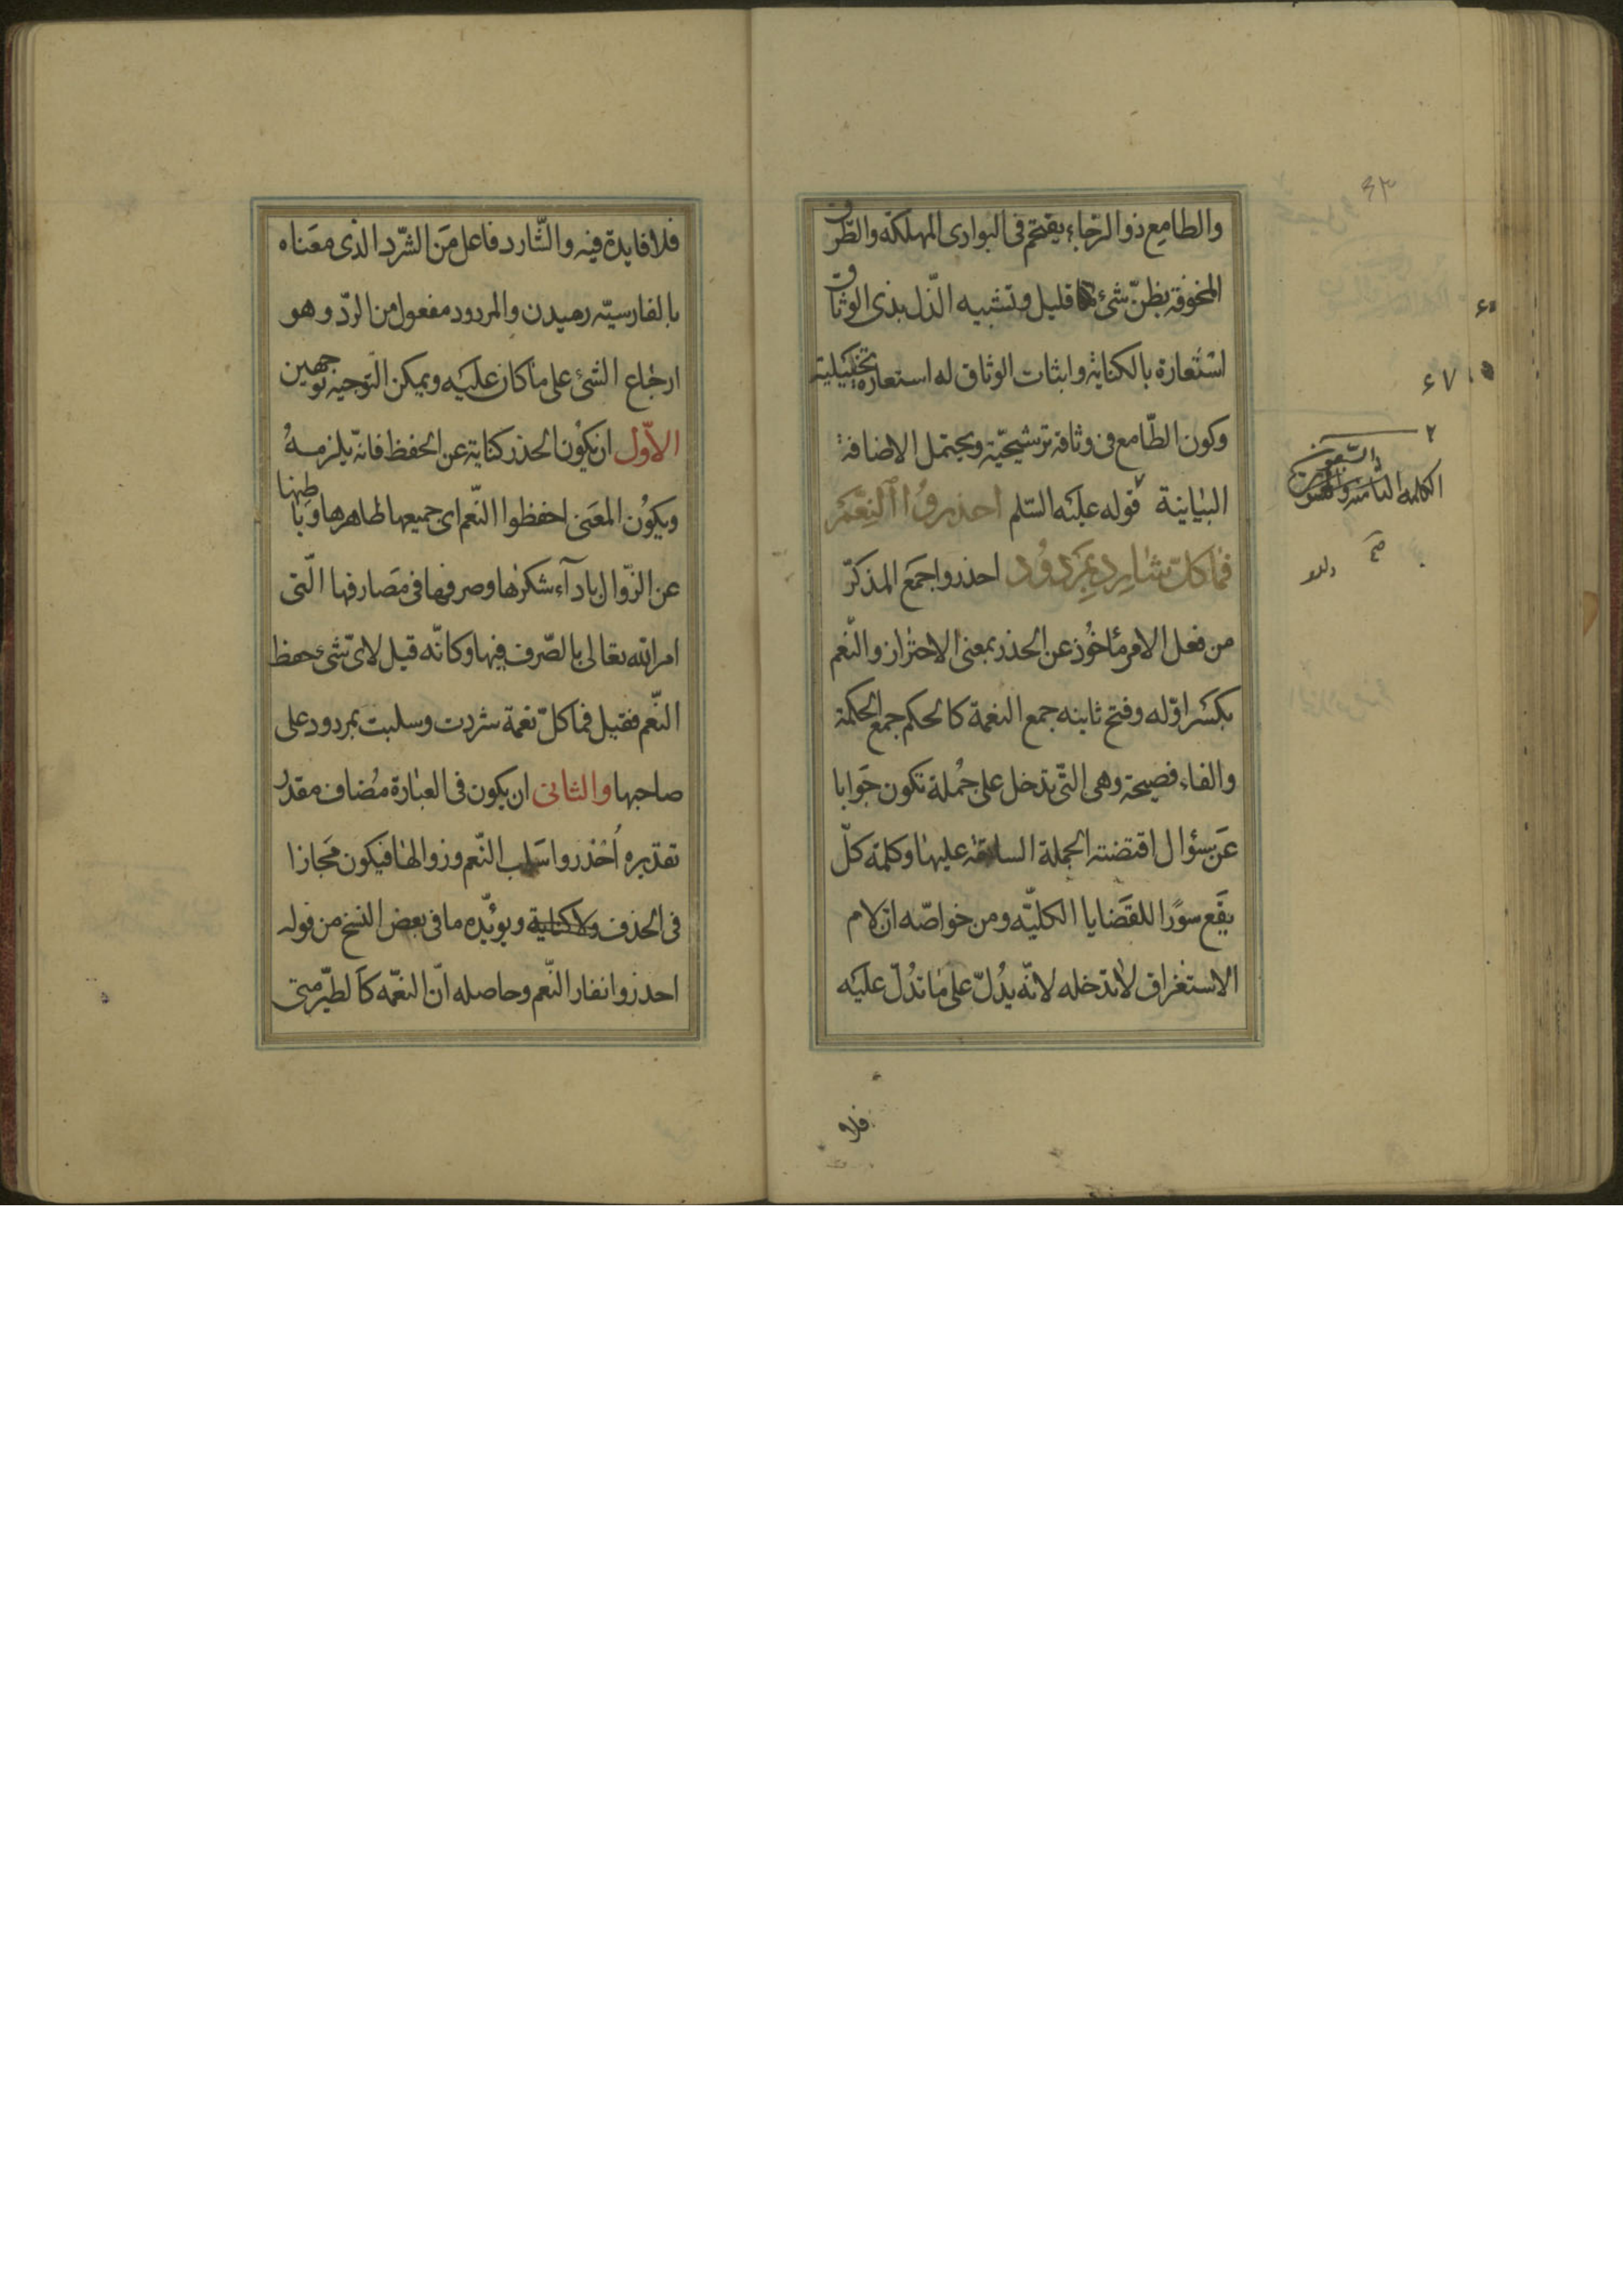 والطامع ذو الرجاء يقتحم فى البوادى المهلكة والطرق
المخوفة بظنّ شئ قليل وتشبيه الذّل بذى الوثاق
استعارة بالكناية واثبات الوثاق له استعارة تخييلية
وكون الطّامع فى وثاقه ترشيحيّة ويحتمل الاضافة
البيانية قوله عليه السّلم احذروا النِّعَم
فما كلّ شارِدٍ بِمَردُودٍ احذروا جمع المذكرّ
من فعل الامر مأخُوذ عن الحذر بمعنى الاحتراز والنّعم
بكسر اوّله وفتح ثانيه جمع النعمة كالحكم جمع الحكمة
والفاء فصيحة وهى الّتى تدخل على جُملة تكون جَوابا
عَن سئوال اقتضته الجملة السابقة عليها وكلمة كلّ
يقع سورًا للقضايا الكليّه ومن خواصّه انّ لام
الاستغراق لا تدخله لانّه يدُلّ على ما تدُلّ عليه
فلا
٢
الكلمه الثامنه والستون
صح
فلا فايدة فيه والشّارد فاعل مَن الشرّد الذى معَناه
بالفارسيّه رميدن والمردود مفعول من الردّ وهو
ارجاع الشئ على ما كان عليه ويمكن التوجيه بوجهين
الاوّل ان يكون الحذر كناية عن الحفظ فانّه يلزمهُ
ويكوُن المعَنى احفظوا النّعم اى جميعها ظاهرها وباطنها
عن الزّوال باداَء شكرها وصرفها فى مَصارفها الّتى
امر الله تعالى بالصّرف فيها وكانّه قيل لاىّ شئ حفظ
النّعم فقيل فما كلّ نعمة شردت وسلبت بمردود على
صاحبها والثانى ان يكون فى العبارة مُضاف مقدّر
تقديره اُحذروا سَلب النّعم وزوالها فيكون مَجازا
فى الحذف ولا كناية ويوئيّده ما فى بعض النسخ من قوله
احذروا نفار النّعم وحاصله انّ النعمّه كاَلطيّر متى